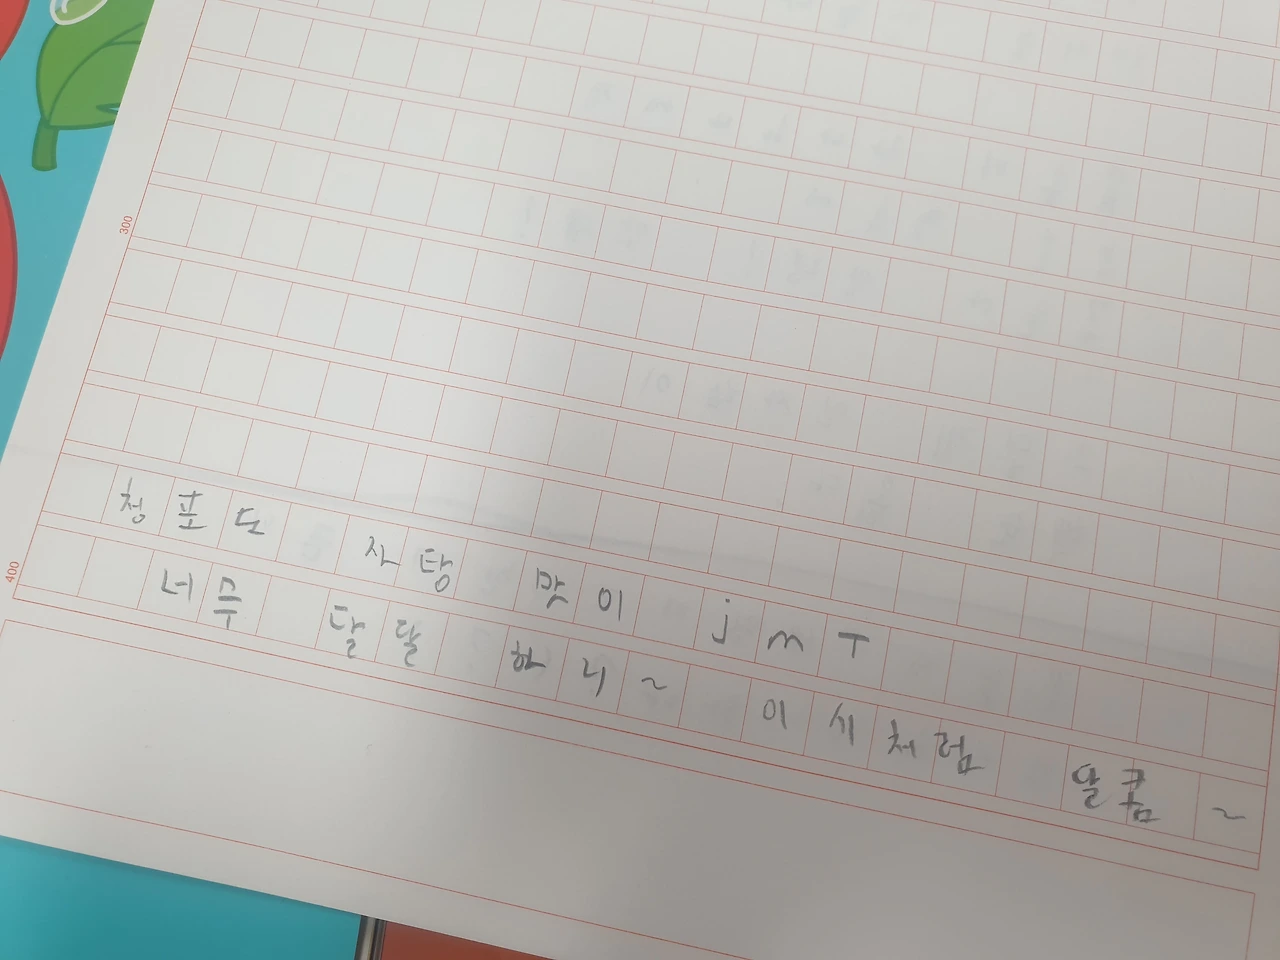 300
청포도 사탕 맛이 jmT
400
너무 달달 하니~ 이시처럼 달콤~